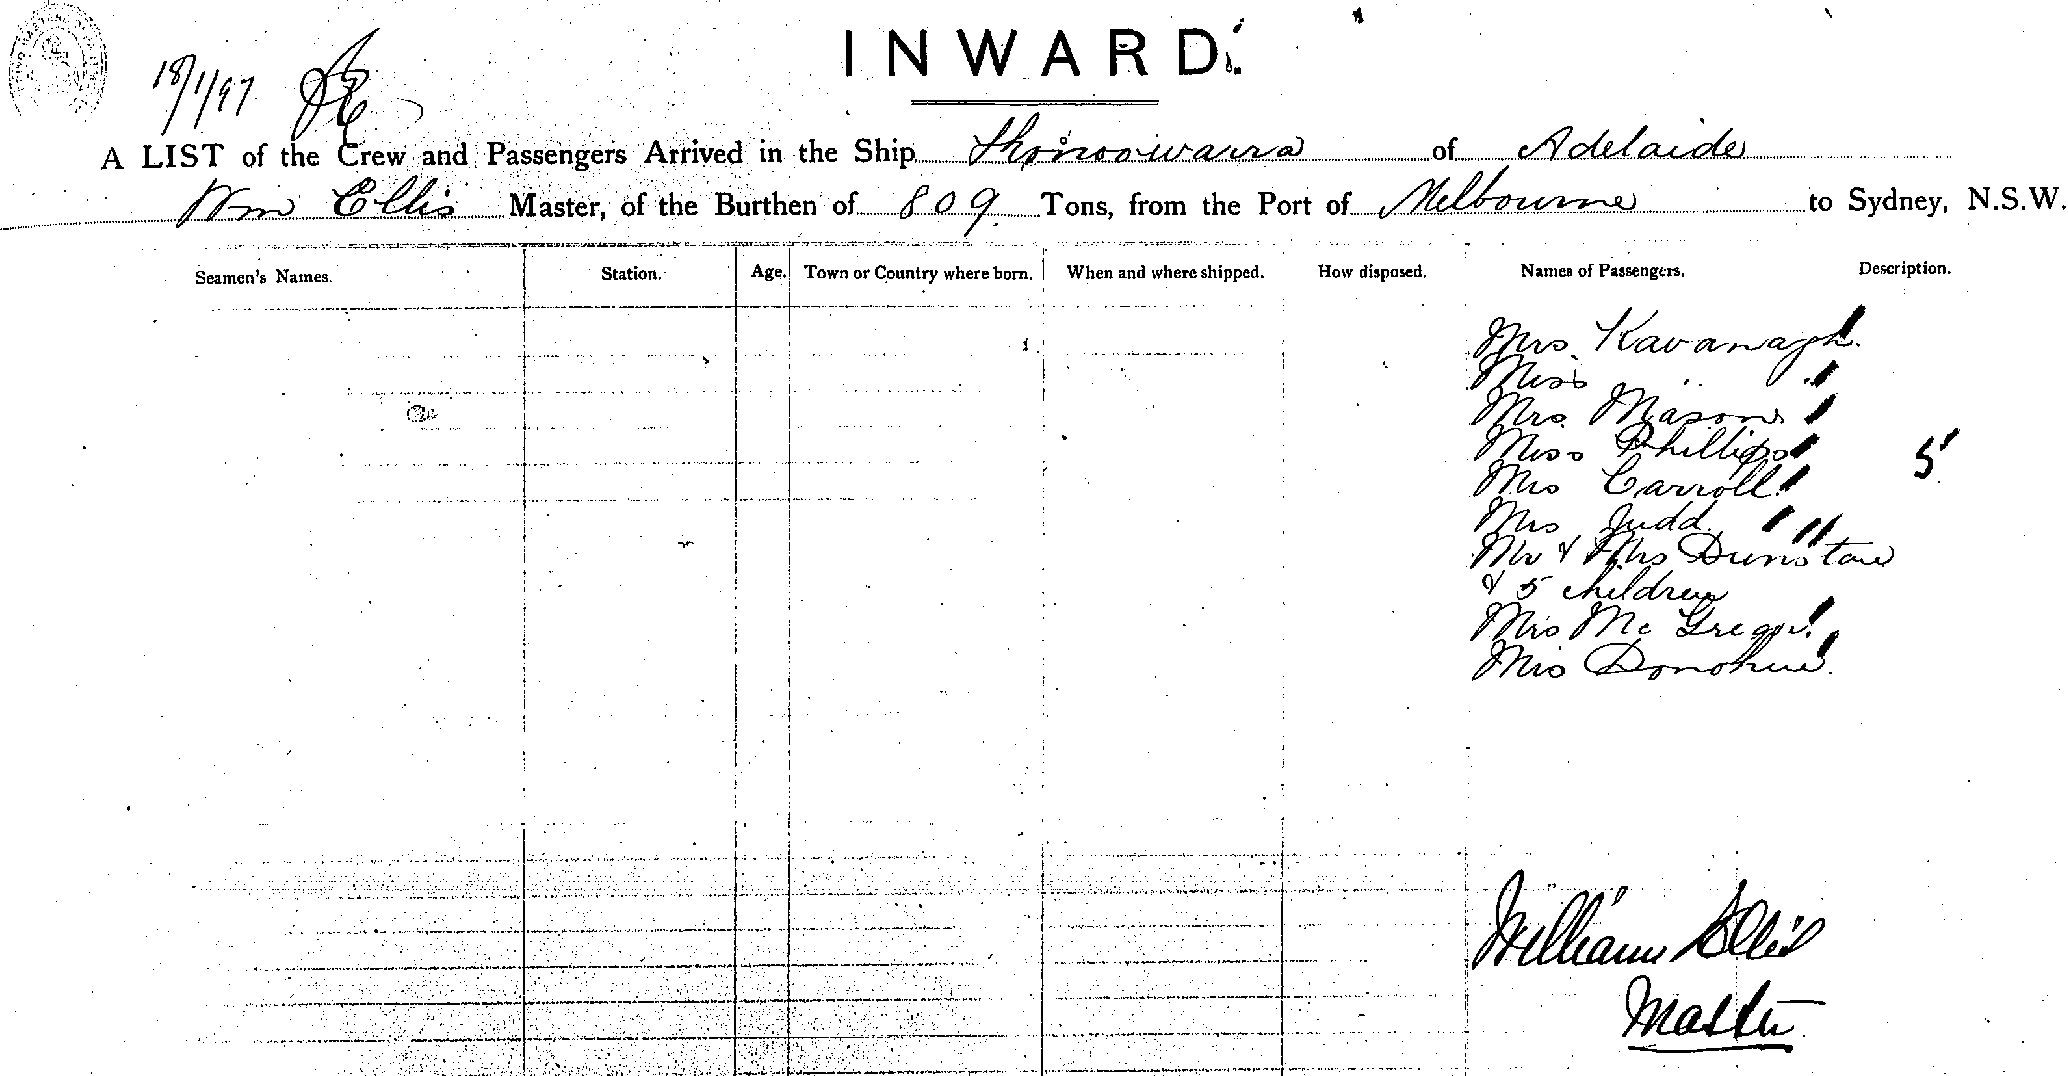 INWARD.
18/1/97
A LIST of the Crew and Passengers Arrived in the Ship Thonoowarra of Adelaide
Wm Ellis Master, of the Burthen of 809 Tons, from the Port of Melbourne to Sydney, N.S.W.
Seamen's Names. Station. Age. Town or Country where born. When and where shipped. How disposed. Names of Passengers. Description.
Mrs Kavanagh
Miss "
Mrs Mason
Miss Phillips 5
Mrs Carroll
Mrs Judd
Mr & Mrs Dunstan
& 5 children
Mrs Mc Gregor
Mrs Donohue
William Ellis
Master